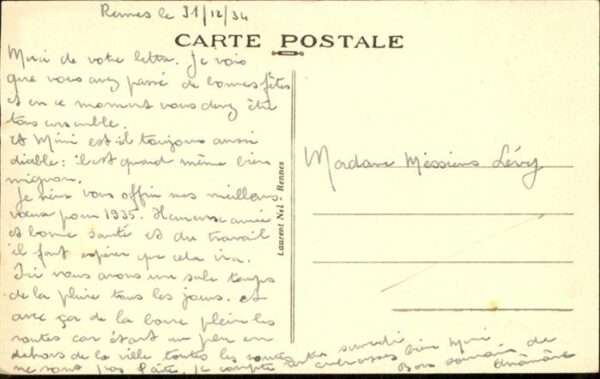 Rennes le 31/12/34
CARTE POSTALE
Merci de votre lettre. Je vois
que vous avez passé de bonnes fêtes
et en ce moment vous devez être
tous ensemble.
Et Mimi est il toujours aussi
diable: il est quand même bien
mignon.
Je viens vous offrir mes meilleurs
vœux pour 1935. Heureuse année
et bonne santé et du travail
il faut espérer que cela ira.
Ici nous avons un sale temps
de la pluie tous les jours. et
avec ça de la boue plein les
routes car étant un peu en
dehors de la ville toutes les routes
ne sont pas faites. Je compte
embrasses bien Mimi
Bons de
Laurent Nel - Rennes
Madame Messiens Lévy